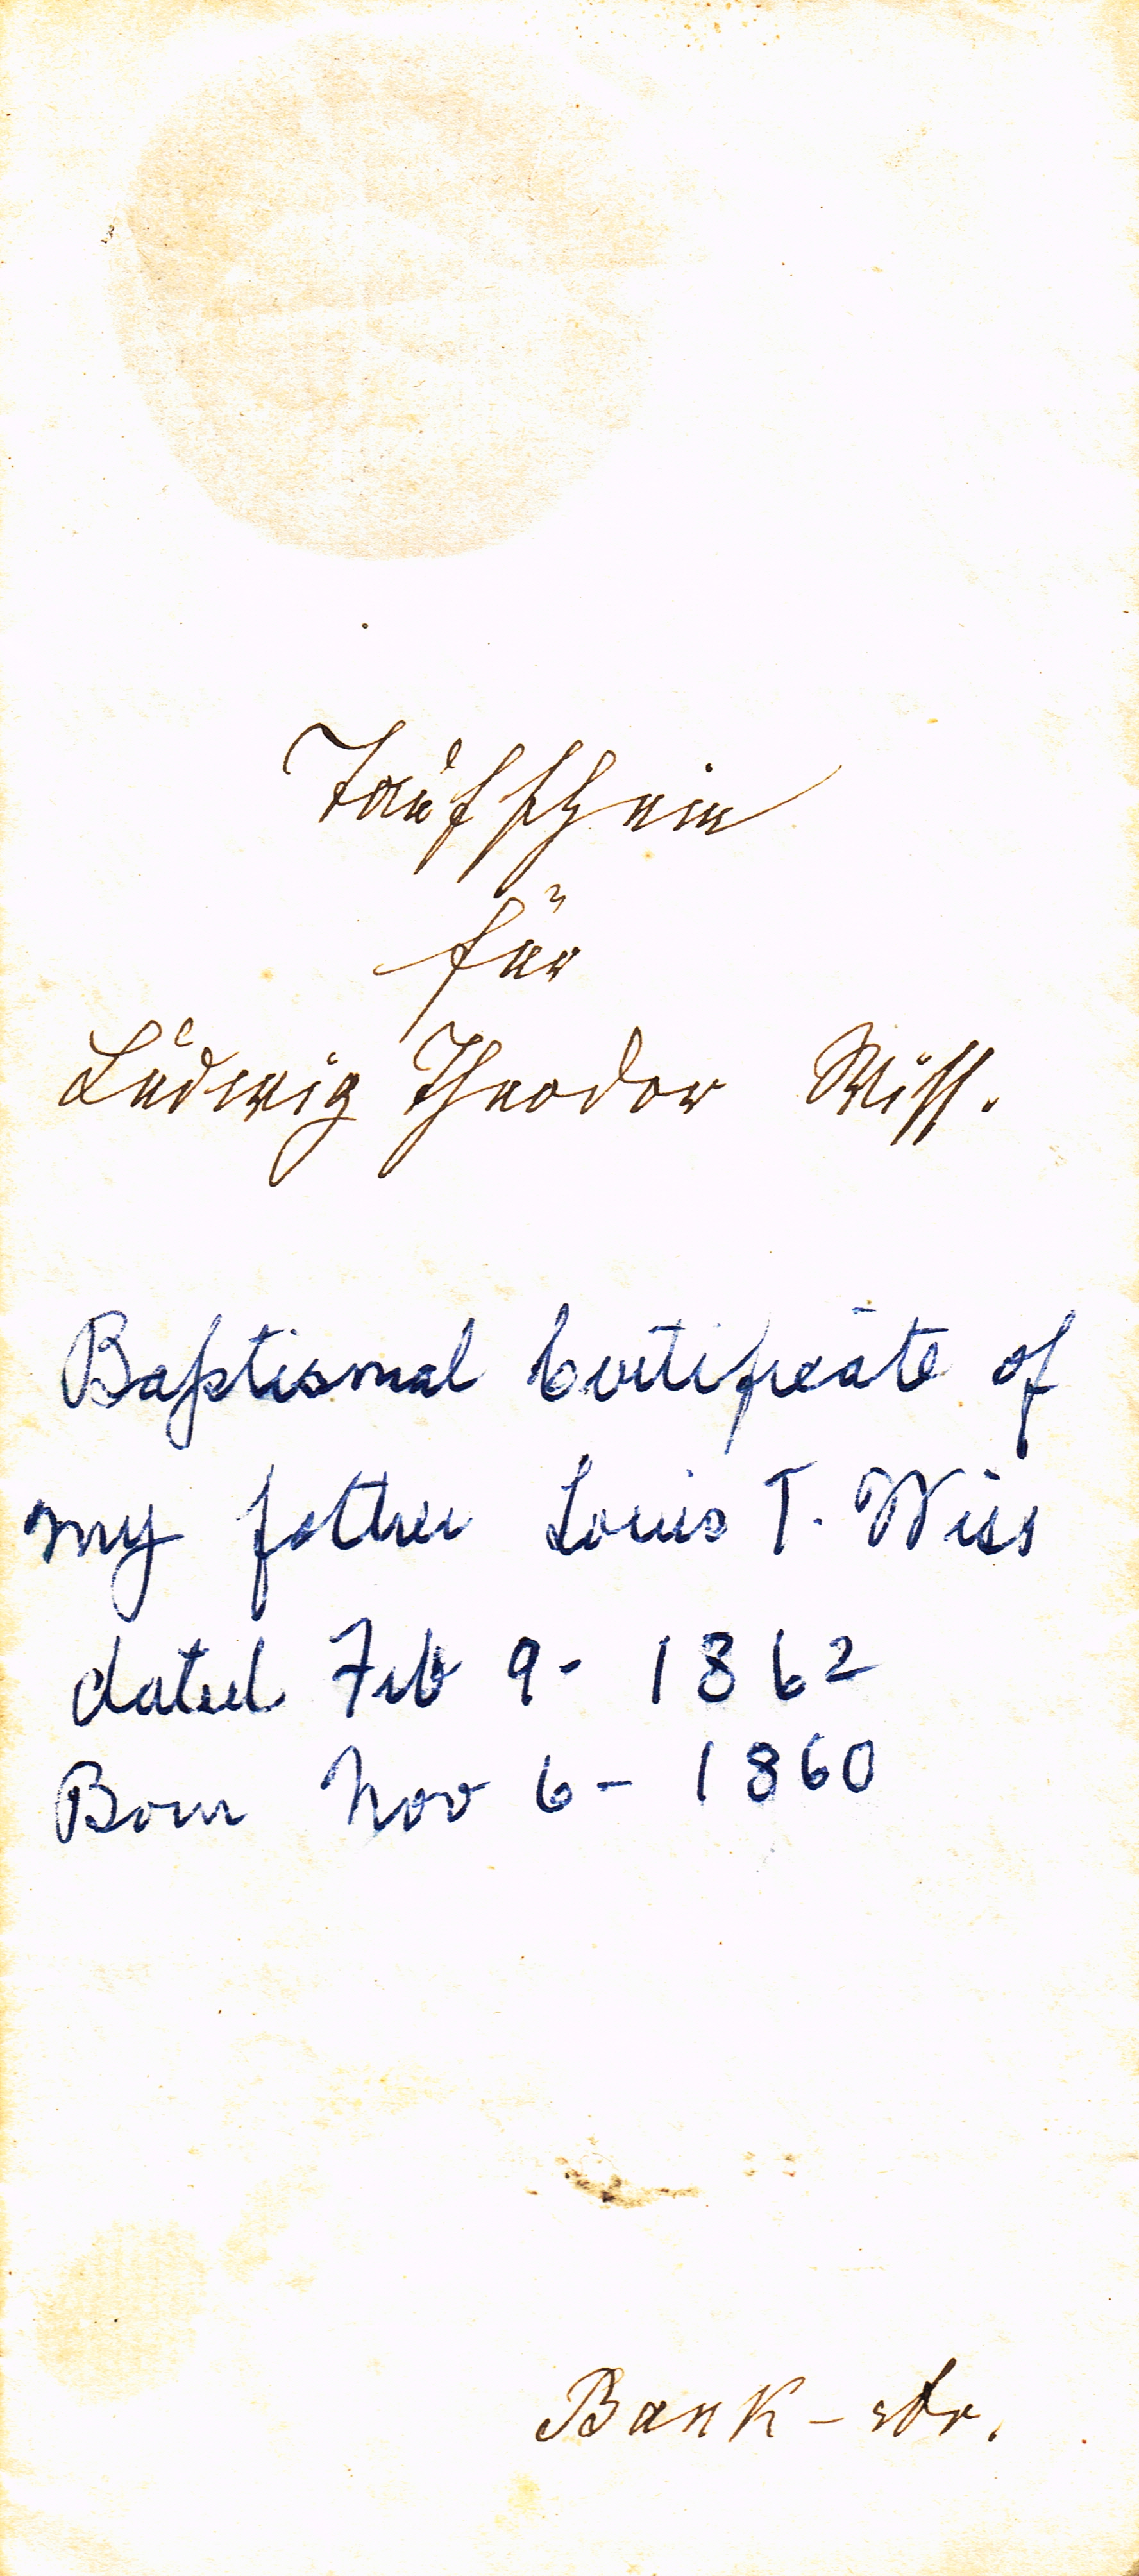 Taufschein
für
Ludwig Theodor Wiss.
Baptismal Certificate of
my father Louis T. Wiss
dated Feb 9 - 1862
Born Nov 6 - 1860
Bank - str.